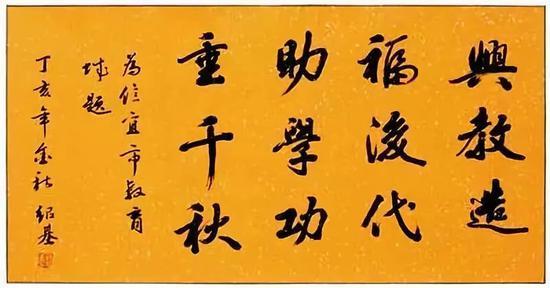 興教造
福後代
助學功
垂千秋
為信宜市教育
城題
丁亥年金秋 紹基